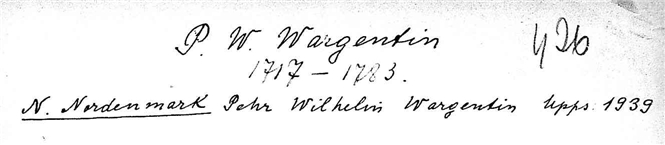 P. W. Wargentin 426
1717 – 1783.
N. Nordenmark Pehr Wilhelm Wargentin Upps. 1939